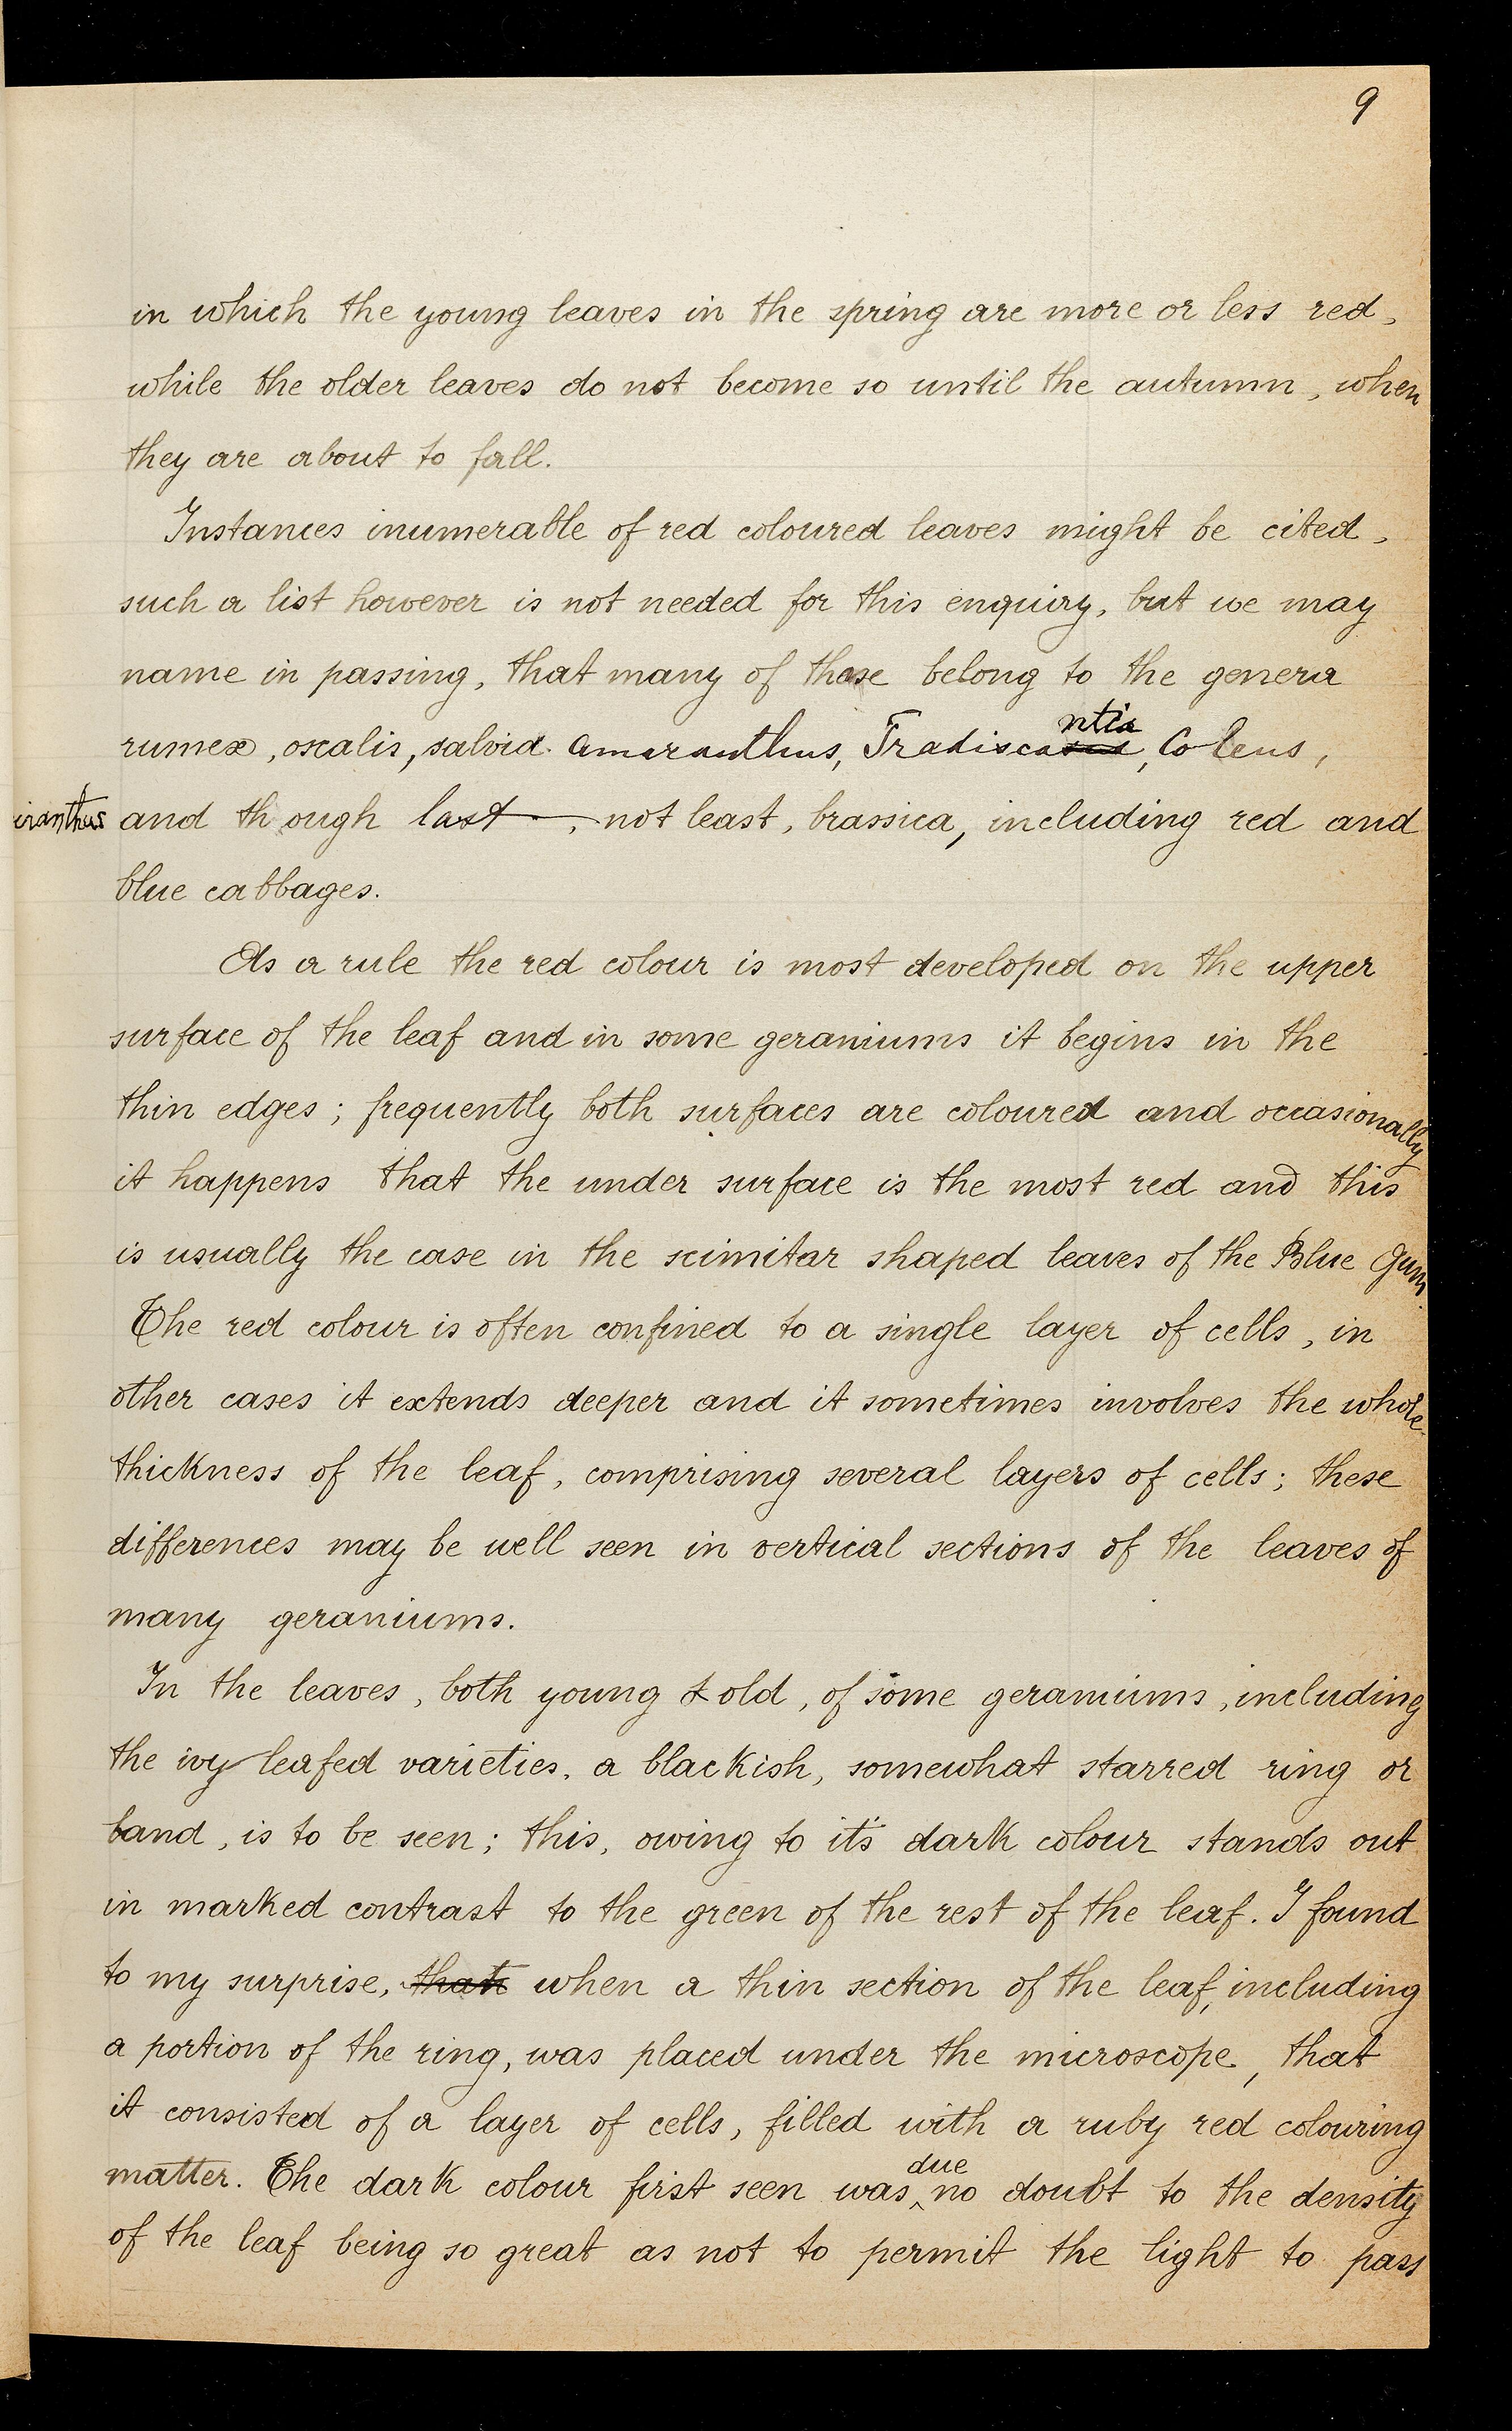 9
in which the young leaves in the spring are more or less red,
while the older leaves do not become so until the autumn, when
they are about to fall.
Instances inumerable of red coloured leaves might be cited,
such a list however is not needed for this enquiry, but we may
name in passing, that many of these belong to the genera
rumex, oxalis, salvia. Amaranthus, Tradiscantia, Coleus,
iranthus and though last, not least, brassica, including red and
blue cabbages.
As a rule the red colour is most developed on the upper
surface of the leaf and in some geraniums it begins in the
thin edges; frequently both surfaces are coloured and occasionally
it happens that the under surface is the most red and this
is usually the case in the scimitar shaped leaves of the Blue Gum.
The red colour is often confined to a single layer of cells, in
other cases it extends deeper and it sometimes involves the whole
thickness of the leaf, comprising several layers of cells; these
differences may be well seen in vertical sections of the leaves of
many geraniums.
In the leaves, both young & old, of some geraniums, including
the ivy-leafed varieties, a blackish, somewhat starred ring or
band, is to be seen; this, owing to it's dark colour stands out
in marked contrast to the green of the rest of the leaf. I found
to my surprise, that when a thin section of the leaf, including
a portion of the ring, was placed under the microscope, that
it consisted of a layer of cells, filled with a ruby red colouring
matter. The dark colour first seen was due no doubt to the density
of the leaf being so great as not to permit the light to pass